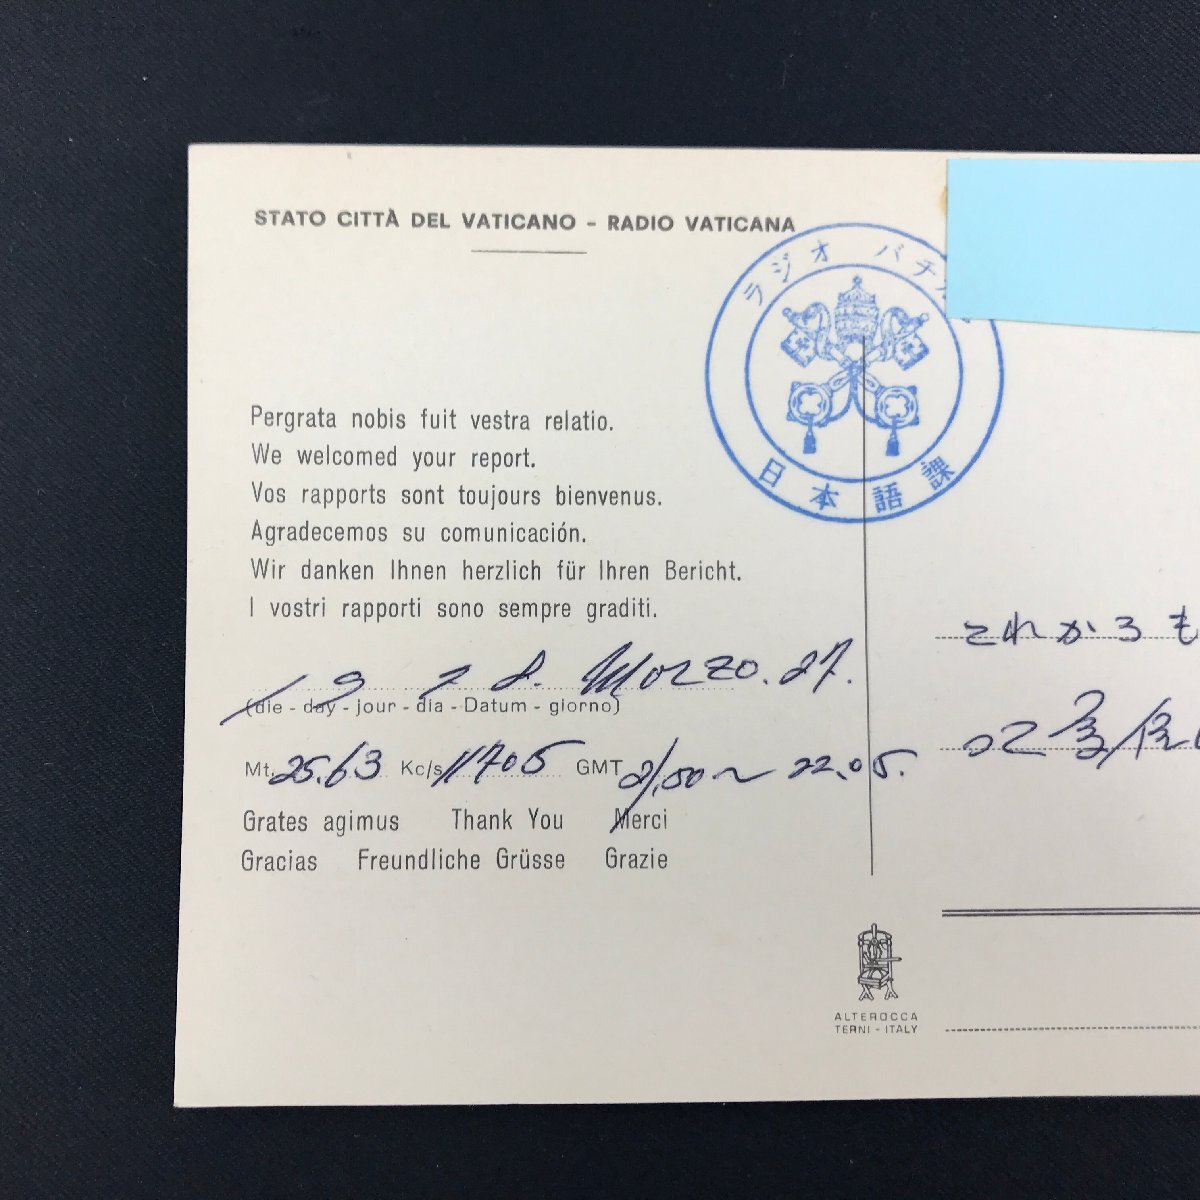 STATO CITTÀ DEL VATICANO - RADIO VATICANA
ラジオ バチ
日本語課
Pergrata nobis fuit vestra relatio.
We welcomed your report.
Vos rapports sont toujours bienvenus.
Agradecemos su comunicación.
Wir danken Ihnen herzlich für Ihren Bericht.
I vostri rapporti sono sempre graditi.
1978. Marzo. 27.
(die - day - jour - dia - Datum - giorno)
Mt. 25.63 Kc/s 11705 GMT 21.50～22.05.
Grates agimus Thank You Merci
Gracias Freundliche Grüsse Grazie
これからも
ALTEROCCA
TERNI - ITALY